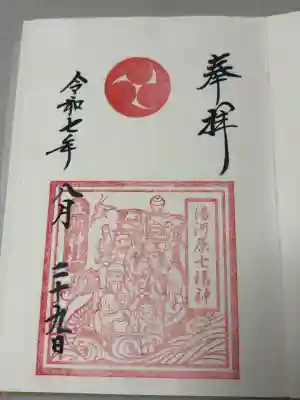 奉拝
湯河原七福神
令和七年
八月二十九日